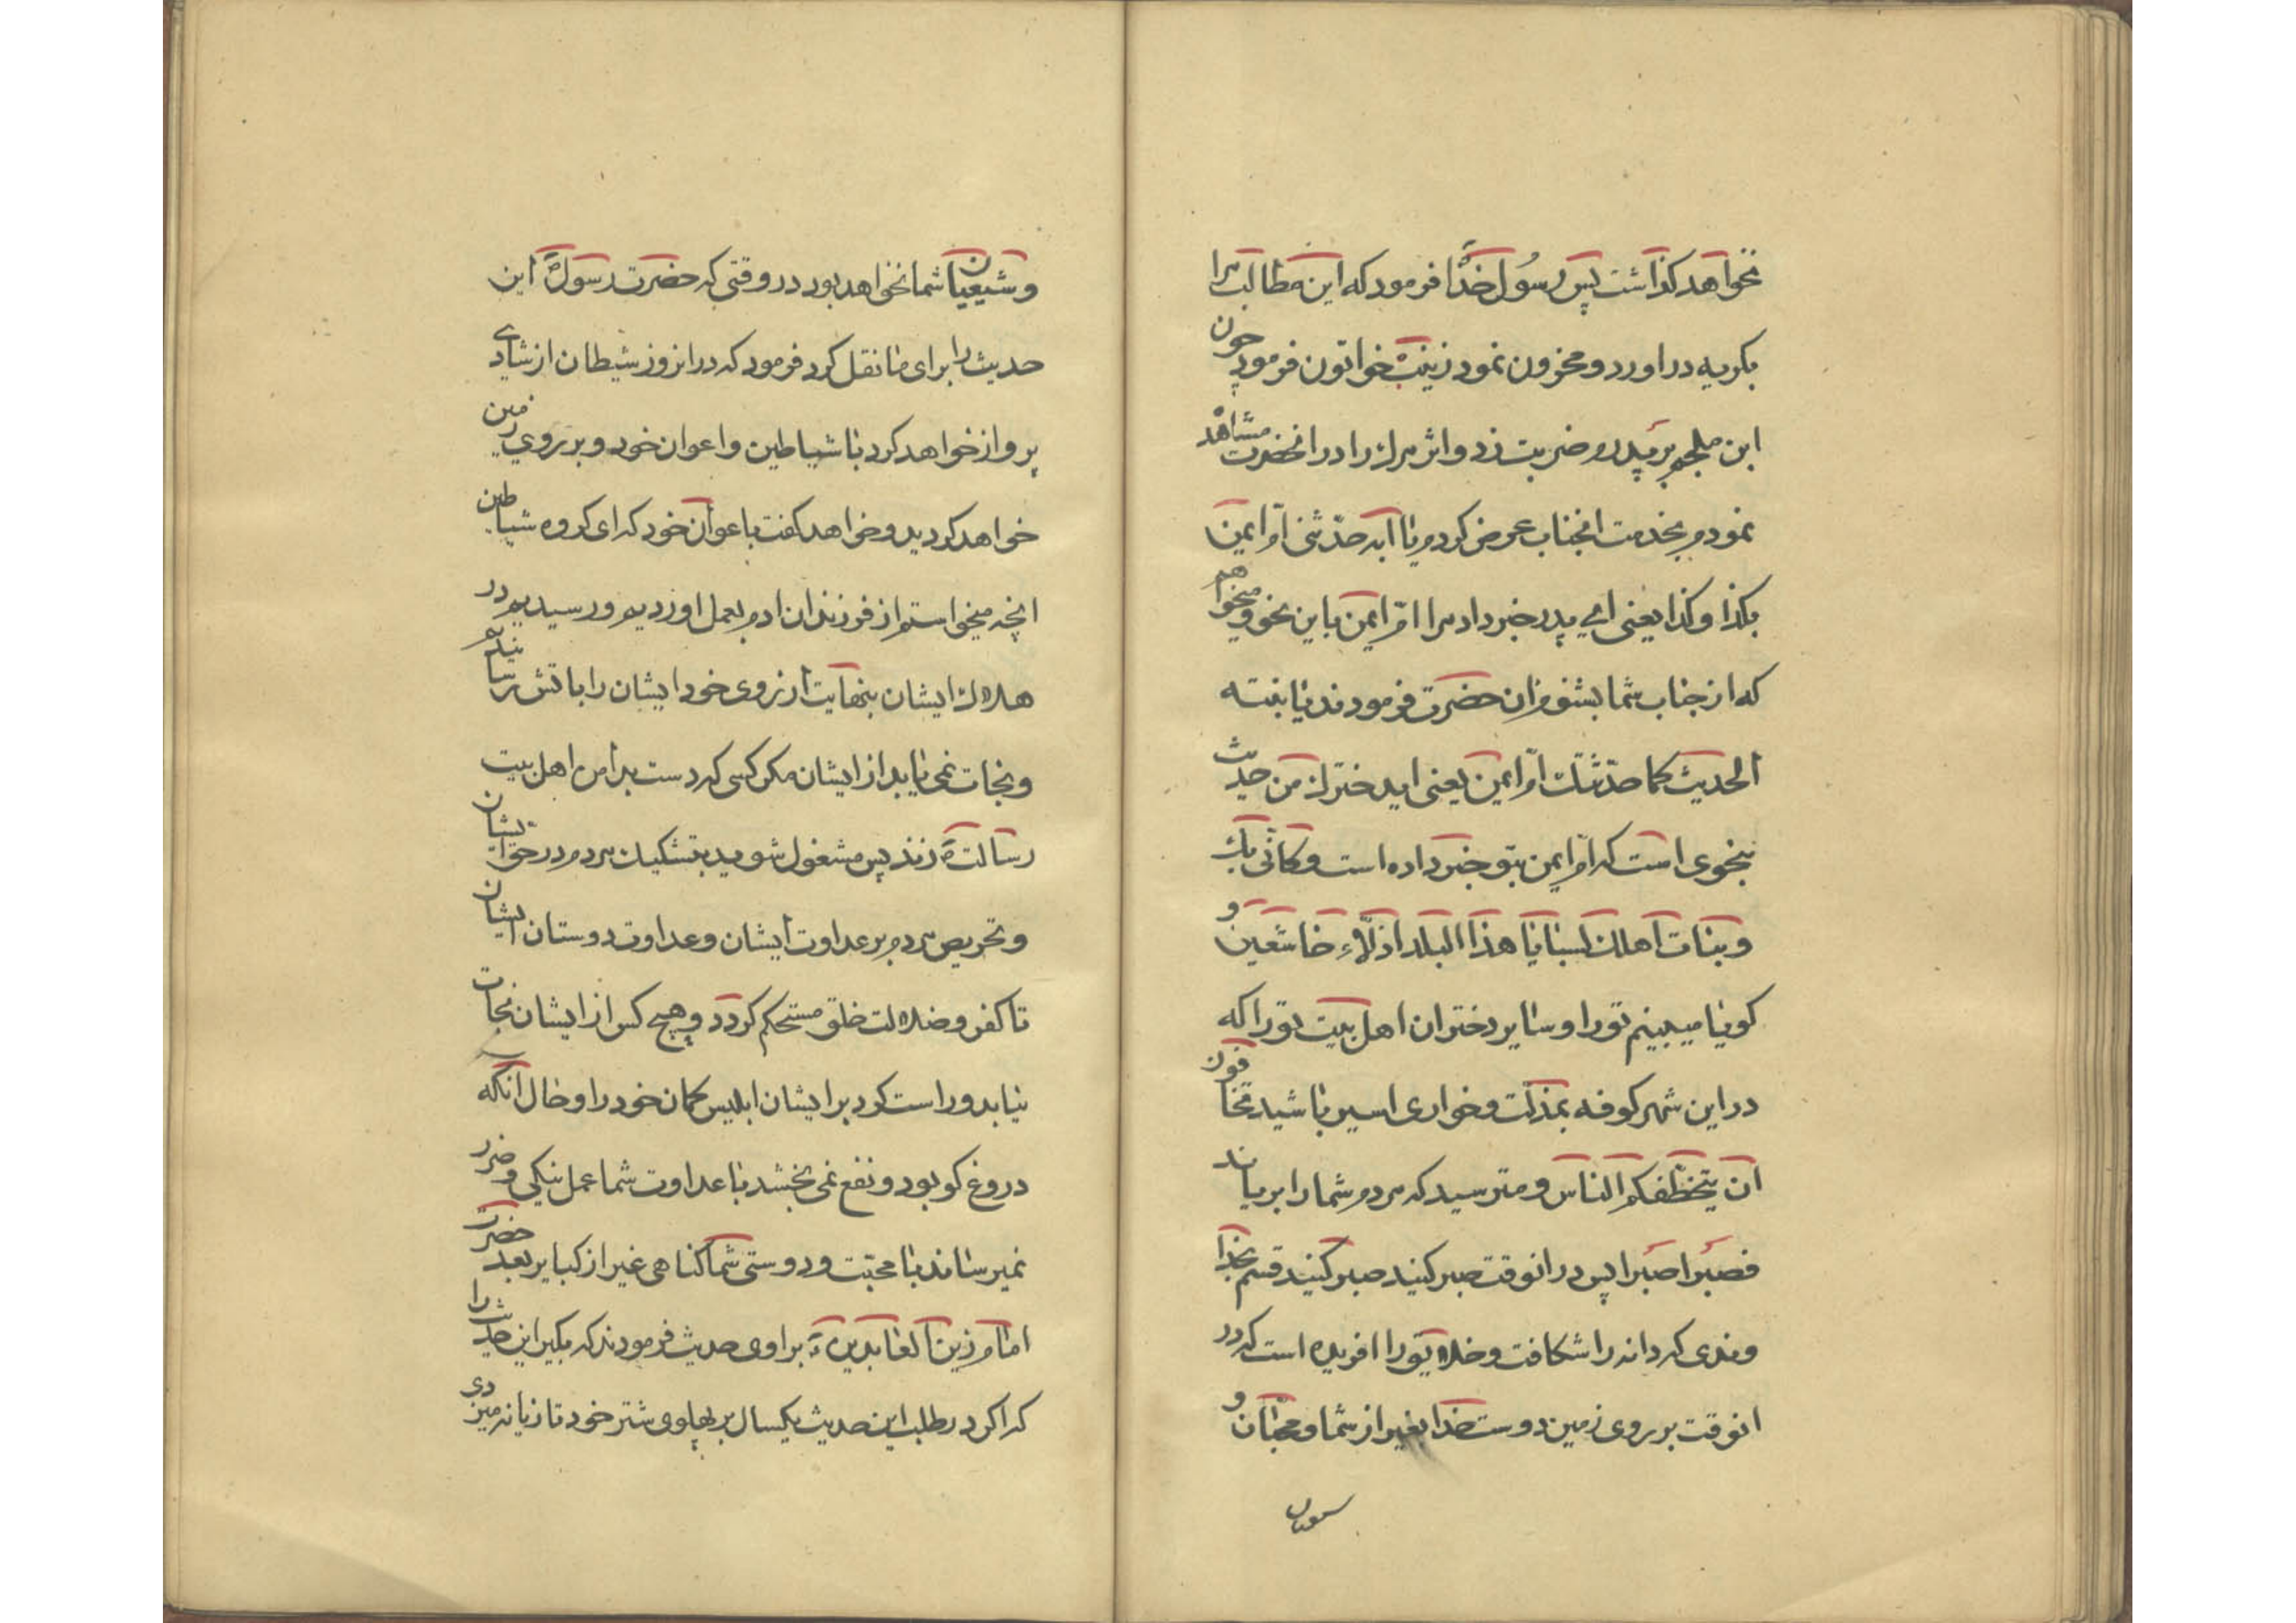 نخواهد کذاشت پس رسول خدا فرمود که این مطالب مرا
بکریه دراورد و محزون نمود زینب خواتون فرمود چون
ابن ملجم بر پدرم ضربت زد و اثر مرک را در انحضرت مشاهده
نمودم بخدمت انجناب عرض کردم یا ابه حدثنی ام ایمن
بکذا و کذا یعنی ای پدر خبر داد مرا ام ایمن باین نحو و میخواهم
که از جناب شما بشنوم ان حضرت فرمودند یا بنته
الحدیث کما حدثتک ام ایمن یعنی ایدخترک من حدیث
بنحوی است که ام ایمن بتو خبر داده است و کانی بک
و بنات اهلک لسبایا هذا البلد اذلاء خاشعین و
کویا میبینم تورا و سایر دختران اهل بیت تورا که
در این شهر کوفه بمذلت و خواری اسیر باشید تخافون
ان یتخطفکم الناس و مترسید که مردم شما را بربایند
فصبرا صبرا پس درانوقت صبر کنید صبر کنید قسم بخدا
وندی که دانه را شکافت و خلایق را افریده است که در
انوقت بر روی زمین دوست خدا بغیر از شما و محبان و
و شیعیان شما نخواهد بود در وقتی که حضرت رسول ص این
حدیث را برای ما نقل کرد فرمود که درانروز شیطان از شادی
پرواز خواهد کرد با شیاطین و اعوان خود و بر روی زمین
خواهد کردید و خواهد کفت باعوان خود که ای کروه شیاطین
انچه میخواستم از فرزندان ادم بعمل اوردیم و رسیدیم در
هلاک ایشان بنهایت ارزوی خود ایشان را باتش رسانیدیم
و نجات نمی یابد از ایشان مکر کسی که دست بدامن اهل بیت
رسالت زند پس مشغول شوید بتشکیک مردم در حق ایشان
و تحریص مردم بر عداوت ایشان و عداوت دوستان ایشان
تا کفر و ضلالت خلق مستحکم کردد و هیچ کس از ایشان نجات
نیابد و راست کرد بر ایشان ابلیس کمان خود را و حال انکه
دروغ کو بود و نفع نمی بخشد با عداوت شما عمل نیکی و ضرر
نمیرساند با محبت و دوستی شما کناهی غیر از کبایر بعد حضرت
امام زین العابدین ع براوی حدیث فرمودند که بکیر این حدیث را
که اکر در طلب این حدیث یکسال بر پهلوی شتر خود تازیانه میزدی